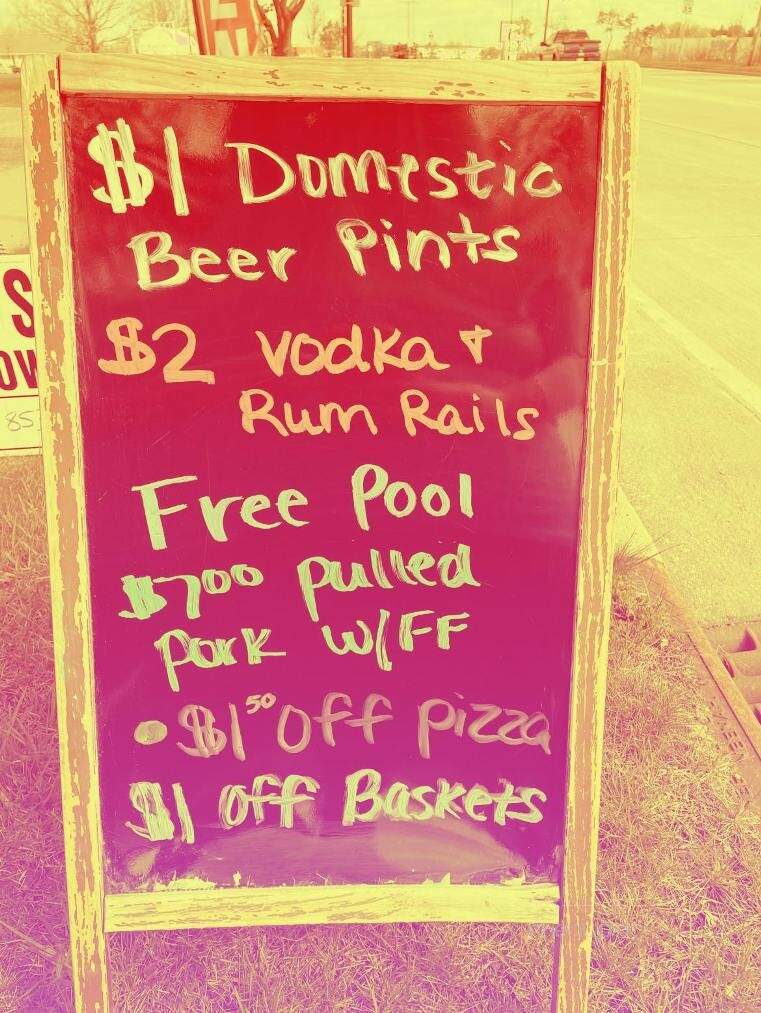 $1 Domestic
Beer Pints
$2 Vodka &
Rum Rails
Free Pool
$7.00 pulled
pork w/FF
• $1.50 off pizza
$1 off Baskets
S
OW
85